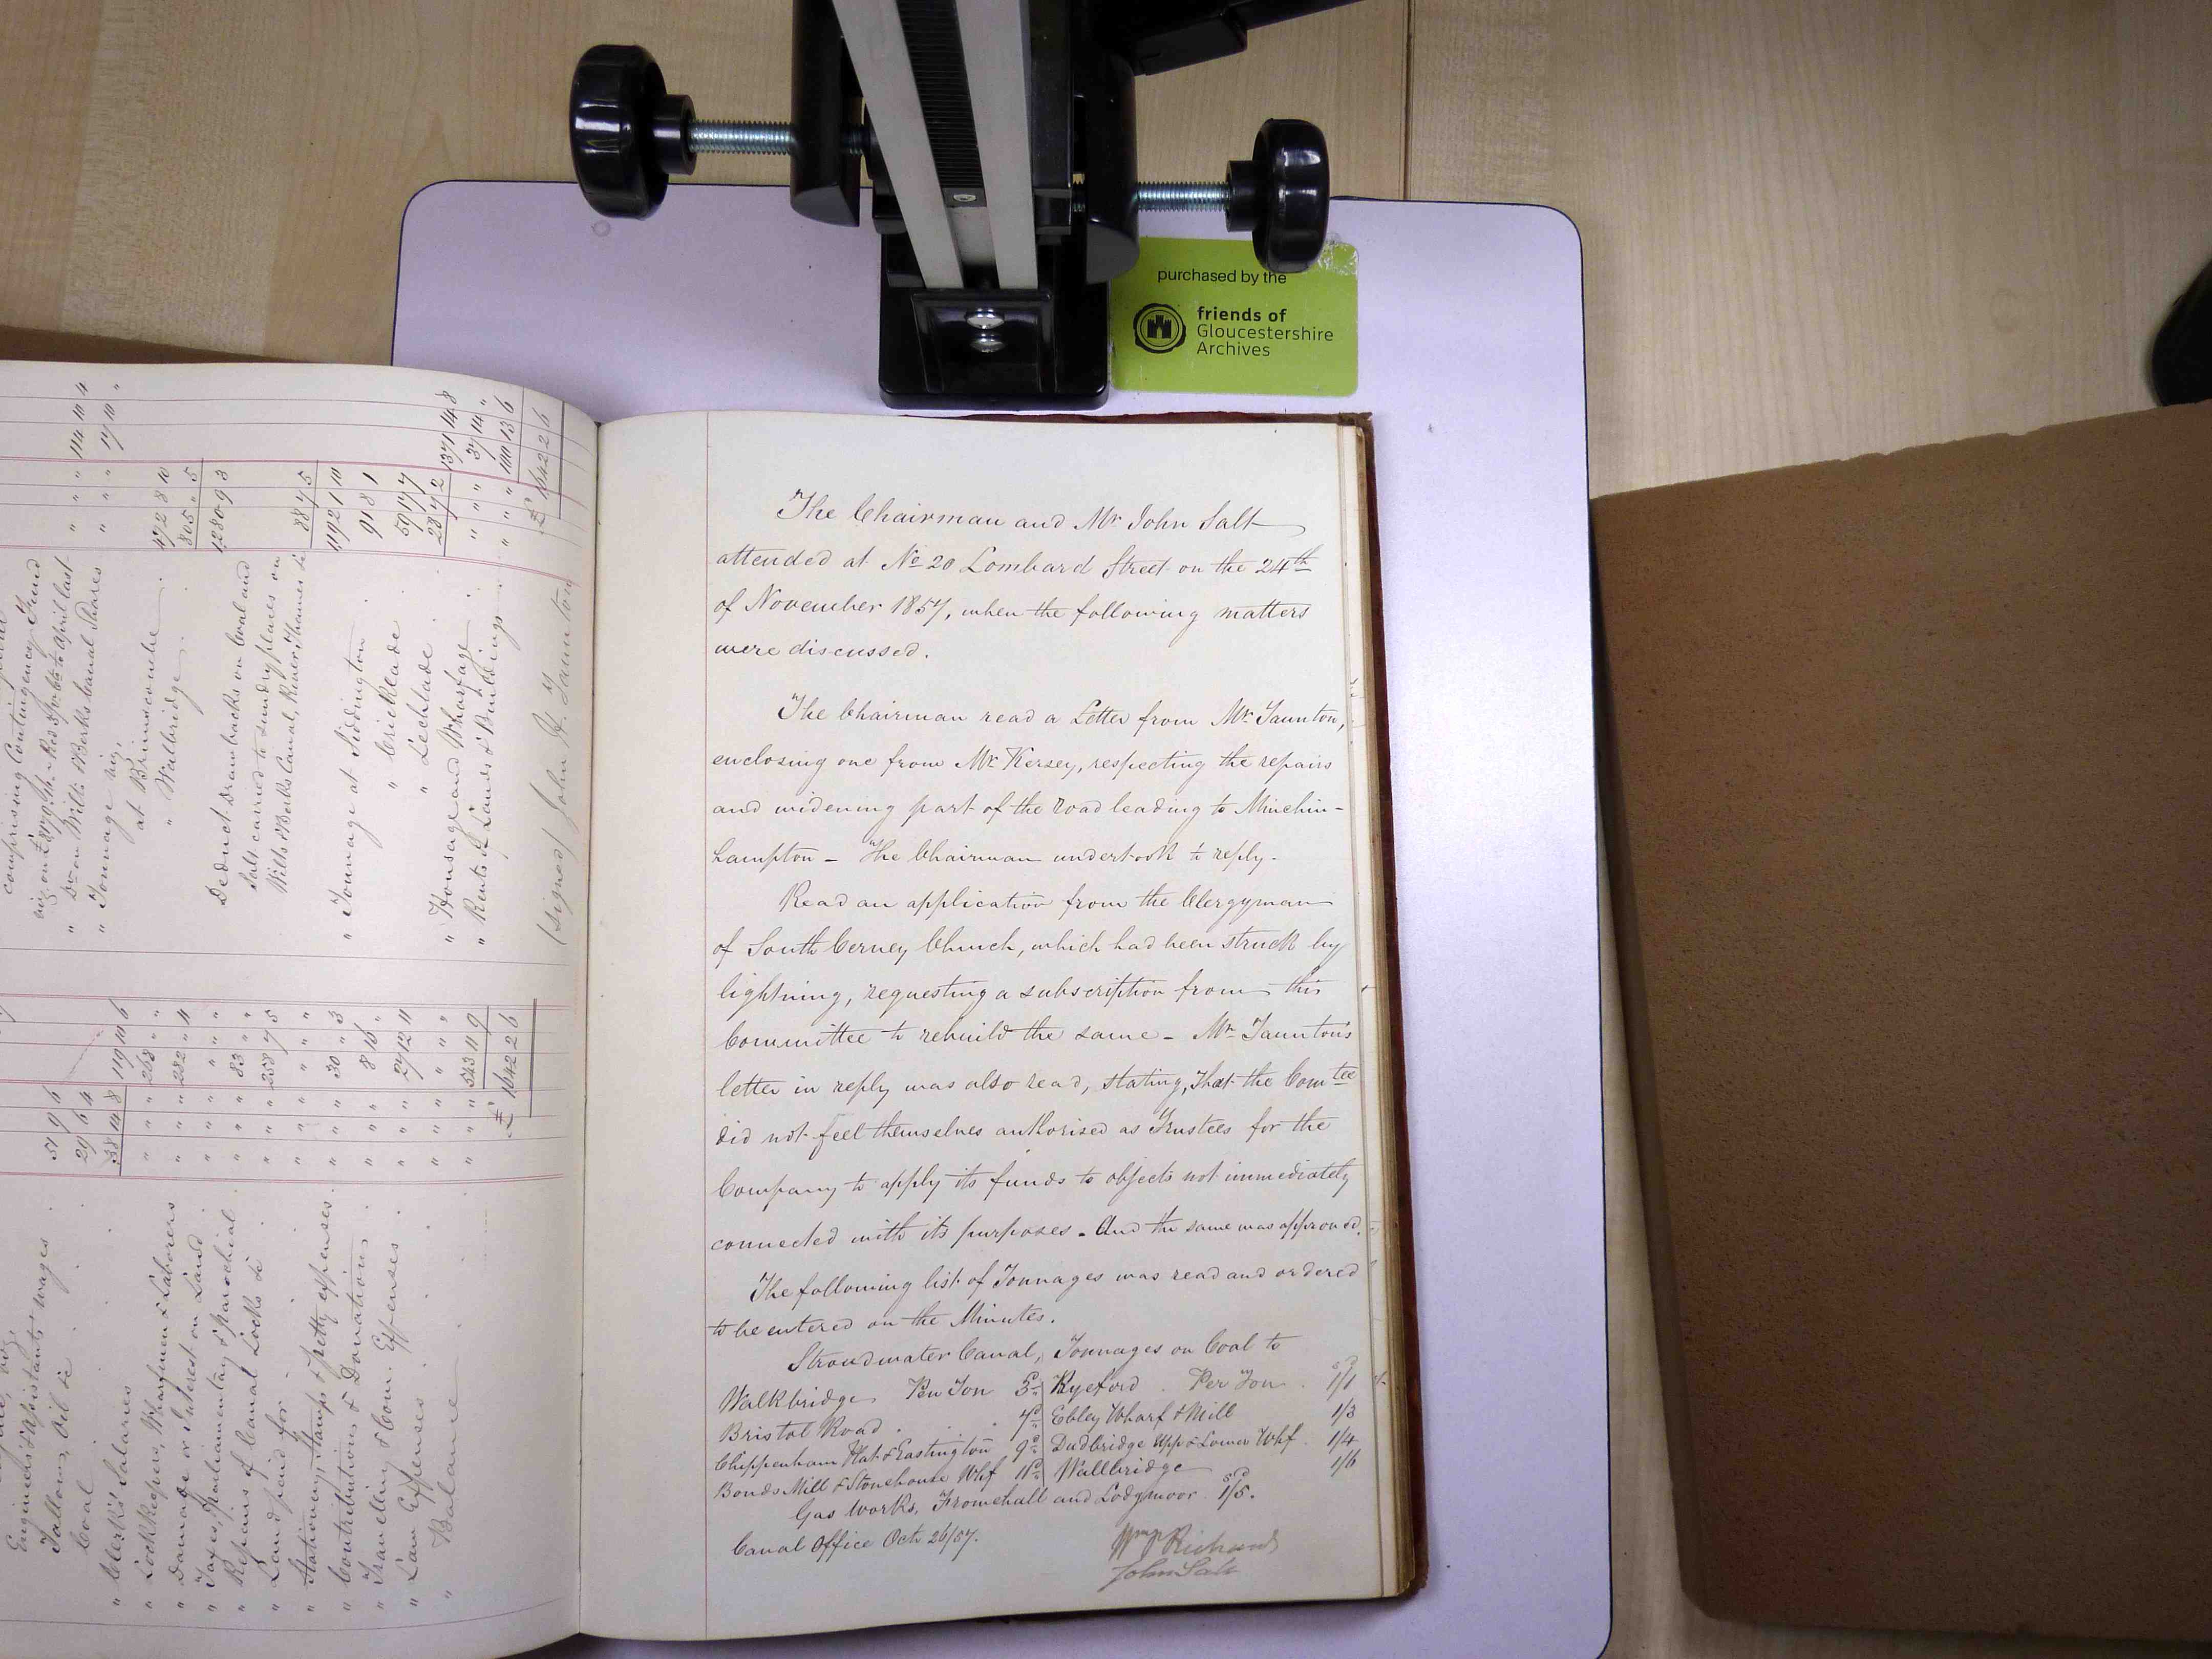 purchased by the
friends of
Gloucestershire
Archives
The Chairman and Mr John Salt
attended at No 20 Lombard Street on the 24th
of November 1857, when the following matters
were discussed.
The Chairman read a Letter from Mr Taunton,
enclosing one from Mr Kersey, respecting the repairs
and widening part of the road leading to Minchin-
hampton - The Chairman undertook to reply.
Read an application from the Clergyman
of South Cerney Church, which had been struck by
lightning, requesting a subscription from this
Committee to rebuild the same - Mr Taunton's
letter in reply was also read, stating, that the Comtee
did not feel themselves authorised as Trustees for the
Company to apply its funds to objects not immediately
connected with its purposes - And the same was approved.
The following list of Tonnages was read and ordered
to be entered on the Minutes.
Stroudwater Canal, Tonnages on Coal to
s d
Walkbridge Per Ton 5d Ryeford . Per Ton . 1/1
Bristol Road . . 7d Ebley Wharf & Mill 1/3
Chippenham Plat & Eastington 9d Dudbridge Upp & Lower Whf . 1/4
Bonds Mill & Stonehouse Whf 11d Wallbridge 1/6
Gas Works, Fromehall and Lodgmoor s d 1/5.
Canal Office Oct 26/57.
Wm Richards
John Salt
comprising Contingency Fund
" Do on Wilts & Berks Canal Shares " " " 17 10 "
" Tonnage viz,
at Brimscombe . 472 8 10
" Wallbridge . 805 " 5
1280 9 3
Deduct Drawbacks on Coal and
Salt carried to sundry places on
Wilts & Berks Canal, River Thames &c 88 7 5
1192 1 10
" Tonnage at Siddington . 91 8 1
" Cricklade . 59 17 7
" Lechlade . 28 7 2 1371 14 8
" Housage and Wharfage . " " " 37 14 "
" Rents of Lands & Buildings . " " " 100 13 6
£ 1642 2 6
(signed) John H. Taunton
Engineers & Assistants wages . 51 9 6
Tallow, Oil &c . 29 6 4
Coal . 38 14 8 119 10 6
" Clerks' Salaries " " " 268 " "
" Lockkeepers, Wharfmen & Laborers " " " 282 " 4
" Damage or Interest on Land . " " " " " "
" Taxes, Parliamentary & parochial . " " " 83 " "
" Repairs of Canal Locks &c . " " " 258 7 5
" Land paid for . " " " " " "
" Stationery, Stamps & petty expenses . " " " 30 " 3
" Contributions & Donations . " " " 8 16 "
" Travelling & Com. Expenses . " " " 27 12 11
" Law Expenses . " " " " " "
" Balance . " " " 543 11 9
£ 1642 2 6